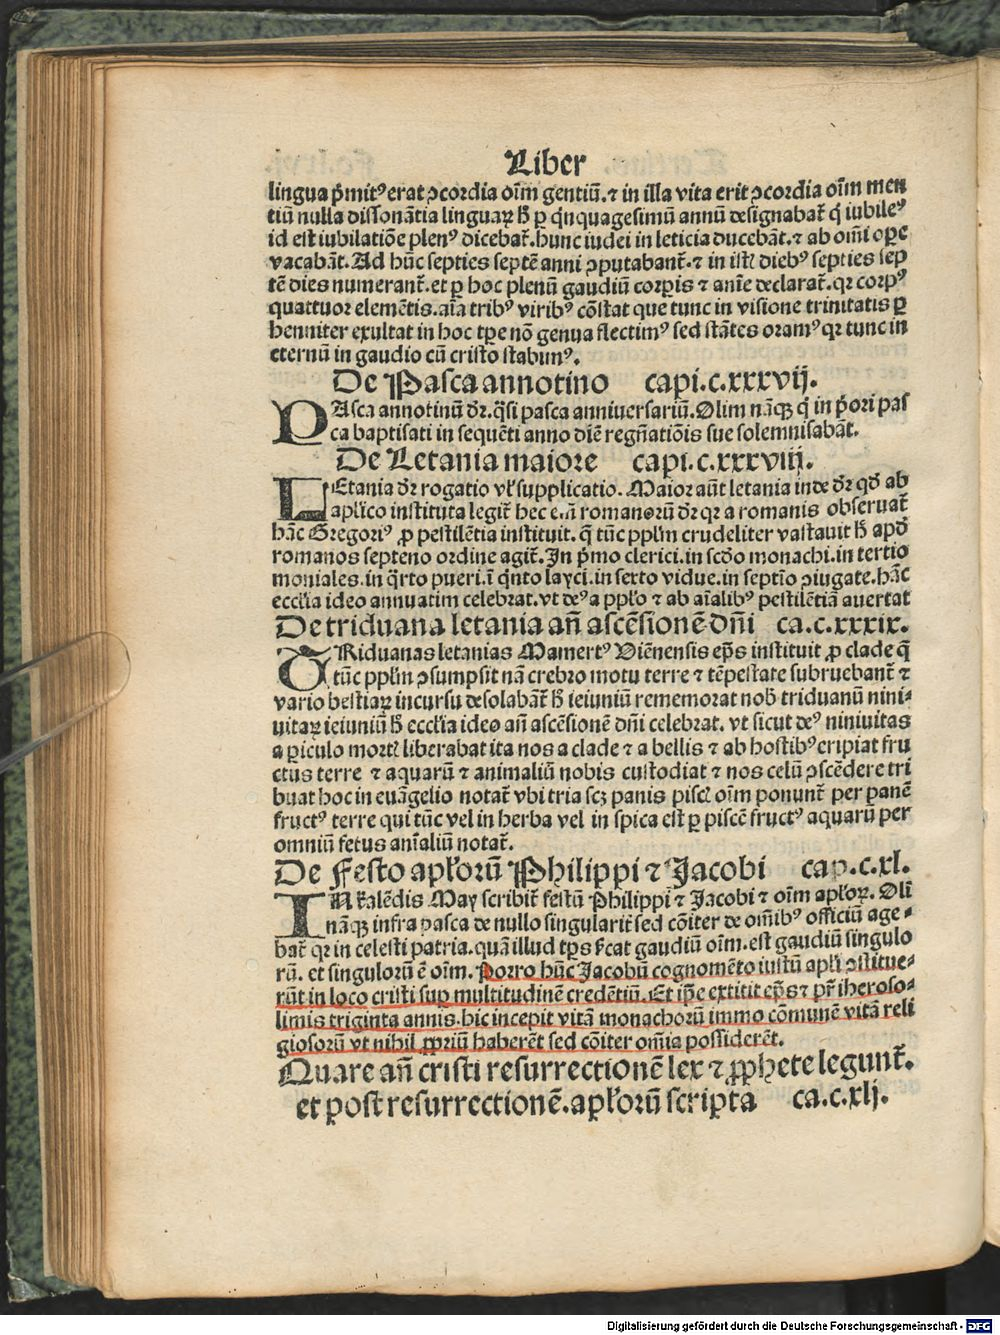 Liber
lingua p̄mitꝰ erat ↄcordia oīm gentiū.⁊ in illa vita erit ↄcordia oīm men
tiū nulla dissonātia linguaꝝ h̄ ꝑ q̄nquagesimū annū designabat̄ q̄ iubileꝰ
id est iubilatiōe plenꝰ dicebat̄.hunc iudei in leticia ducebāt.⁊ ab om̄i opere
vacabāt.Ad hūc septies septē anni ↄputabant̄.⁊ in istꝭ diebꝰ septies sep
tē dies numerant̄.et ꝑ hoc plenū gaudiū corꝑis ⁊ anīe declarat̄.qꝛ corpꝰ
quattuor elemētis.aīa tribꝰ viribꝰ cōstat que tunc in visione trinitatis ꝑ
henniter exultat in hoc tꝑe nō genua flectimꝰ sed stātes oramꝰ qꝛ tunc in
eternū in gaudio cū cristo stabunꝰ.
De Pasca annotino capi.c.xxxvij.
PAsca annotinū dr̄.q̄si pasca anniuersariū.Olim nāqꝫ q̄ in p̄ori pas
ca baptisati in sequēti anno diē regn̄atiōis sue solemnisabāt.
De Letania maiore capi.c.xxxviij.
LEtania dr̄ rogatio vl̓ supplicatio. Maior aūt letania inde dr̄ qd̄ ab
apl̓ico instituta legit̄ hec etiā romanorū dr̄ qꝛ a romanis obseruat̄
hāc Gregoriꝰ ꝓ pestilētia instituit. q̄ tūc ppl̄m crudeliter vastauit h̄ apd̄
romanos septeno ordine agit̄.In p̄mo clerici.in scd̄o monachi.in tertio
moniales.in q̄rto pueri.ī q̄nto layci.in sexto vidue.in septīo ↄiugate.hāc
eccl̓ia ideo annuatim celebrat.vt deꝰ a ppl̓o ⁊ ab aīalibꝰ pestilētiā auertat
De triduana letania an̄ ascēsionē dn̄i ca.c.xxxix.
TRiduanas letanias Mamertꝰ Viēnensis ep̄s instituit ꝓ clade q̄
tūc ppl̄m ↄsumpsit nā crebro motu terre ⁊ tēpestate subruebant̄ ⁊
vario bestiaꝝ incursu desolabāt̄ h̄ ieiuniū rememorat nob̄ triduanū nini-
uitaꝝ ieiuniū h̄ eccl̓ia ideo an̄ ascēsionē dn̄i celebrat. vt sicut deꝰ niniuitas
a ꝑiculo mortꝭ liberabat ita nos a clade ⁊ a bellis ⁊ ab hostibꝰ eripiat fru
ctus terre ⁊ aquarū ⁊ animaliū nobis custodiat ⁊ nos celū ↄscēdere tri
buat hoc in euāgelio notat̄ vbi tria scꝫ panis piscꝭ oīm ponunt̄ per panē
fructꝰ terre qui tūc vel in herba vel in spica est ꝑ piscē fructꝰ aquarū per
omniū fetus anīaliū notat̄.
De Festo apl̓orū Philippi ⁊ Jacobi cap.c.xl.
IN kalēdis May scribit̄ festū Philippi ⁊ Jacobi ⁊ oīm apl̓oꝝ. Olī
nāqꝫ infra pasca de nullo singularit̄ sed cōiter de om̄ibꝰ officiū age-
bat̄ qꝛ in celesti patria.quā illud tp̄s s̄cat gaudiū oīm.est gaudiū singulo
rū. et singulorū ē oīm. Porro hūc Jacobū cognomēto iustū apl̓i ↄstitue-
rūt in loco cristi suꝑ multitudinē credētiū.Et ip̄e extitit ep̄s ⁊ pr̄ iheroso-
limis triginta annis.hic incepit vitā monachorū immo cōmunē vitā reli
giosorū vt nihil ꝓpriū haberēt sed cōiter omīa possiderēt.
Quare an̄ cristi resurrectionē lex ⁊ ꝓphete legunt̄.
et post resurrectionē.apl̓orū scripta ca.c.xlj.
Digitalisierung gefördert durch die Deutsche Forschungsgemeinschaft - DFG